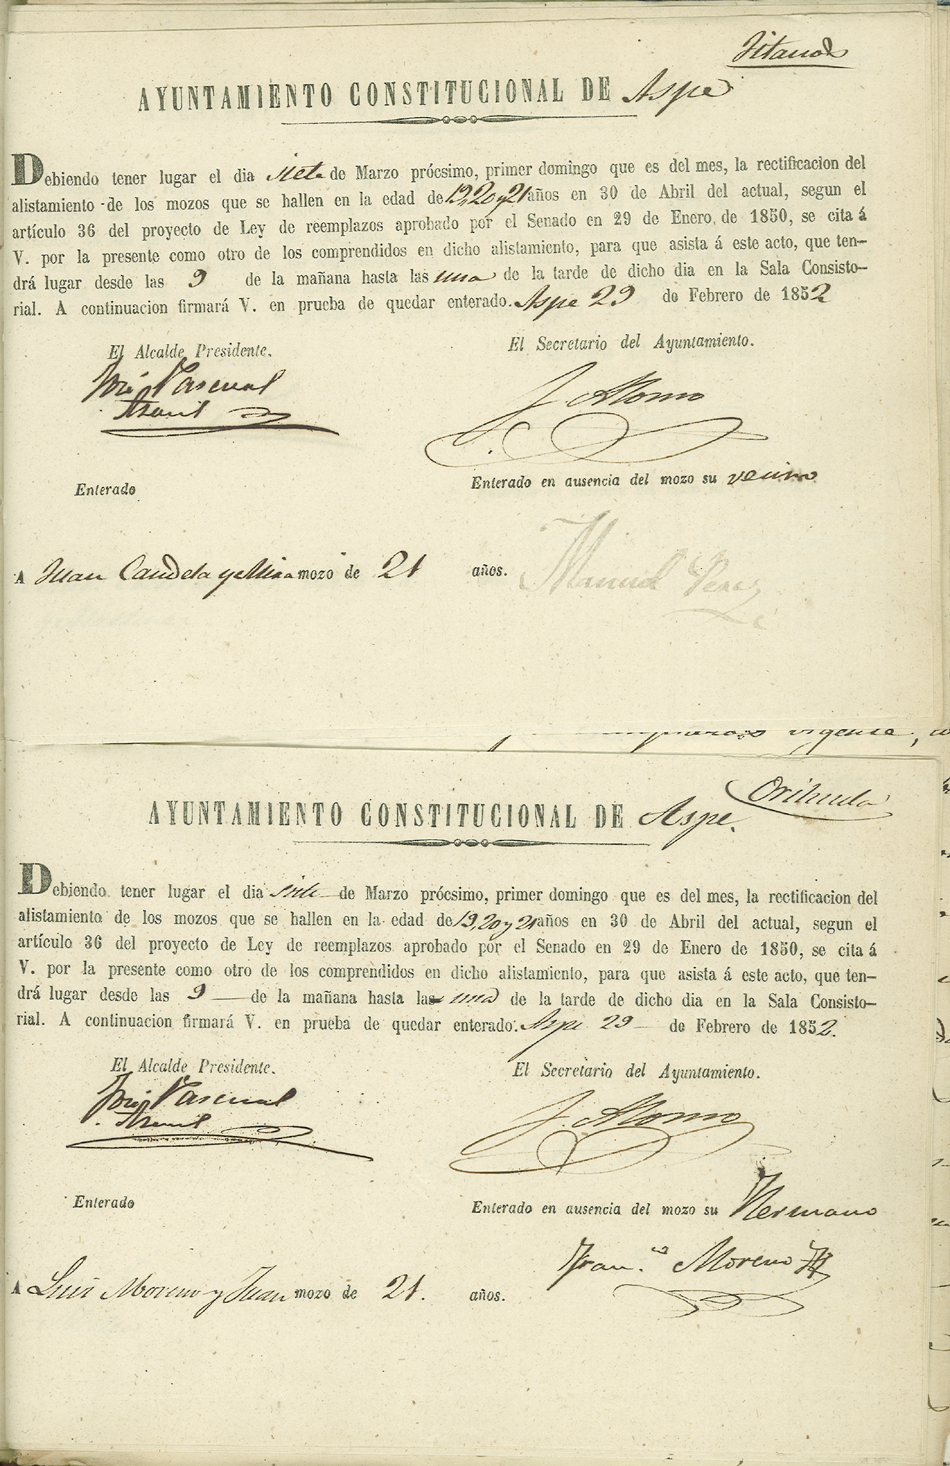 Jitanos
AYUNTAMIENTO CONSTITUCIONAL DE Aspe
Debiendo tener lugar el dia siete de Marzo prócsimo, primer domingo que es del mes, la rectificacion del
alistamiento de los mozos que se hallen en la edad de 19, 20 y 21 años en 30 de Abril del actual, segun el
artículo 36 del proyecto de Ley de reemplazos aprobado por el Senado en 29 de Enero de 1850, se cita á
V. por la presente como otro de los comprendidos en dicho alistamiento, para que asista á este acto, que ten-
drá lugar desde las 9 de la mañana hasta las una de la tarde de dicho dia en la Sala Consisto-
rial. A continuacion firmará V. en prueba de quedar enterado. Aspe 29 de Febrero de 1852
El Alcalde Presidente. El Secretario del Ayuntamiento.
José Pascual J. Alonso
Enterado Enterado en ausencia del mozo su vecino
Manuel Perez
A Juan Candela y Mira mozo de 21 años.
vigente,
Orihuela
AYUNTAMIENTO CONSTITUCIONAL DE Aspe.
Debiendo tener lugar el dia siete de Marzo prócsimo, primer domingo que es del mes, la rectificacion del
alistamiento de los mozos que se hallen en la edad de 19, 20 y 21 años en 30 de Abril del actual, segun el
artículo 36 del proyecto de Ley de reemplazos aprobado por el Senado en 29 de Enero de 1850, se cita á
V. por la presente como otro de los comprendidos en dicho alistamiento, para que asista á este acto, que ten-
drá lugar desde las 9 de la mañana hasta las una de la tarde de dicho dia en la Sala Consisto-
rial. A continuacion firmará V. en prueba de quedar enterado. Aspe 29 de Febrero de 1852.
El Alcalde Presidente. El Secretario del Ayuntamiento.
José Pascual J. Alonso
Enterado Enterado en ausencia del mozo su Hermano
Fran.co Moreno
A Luis Moreno y Juan mozo de 21. años.